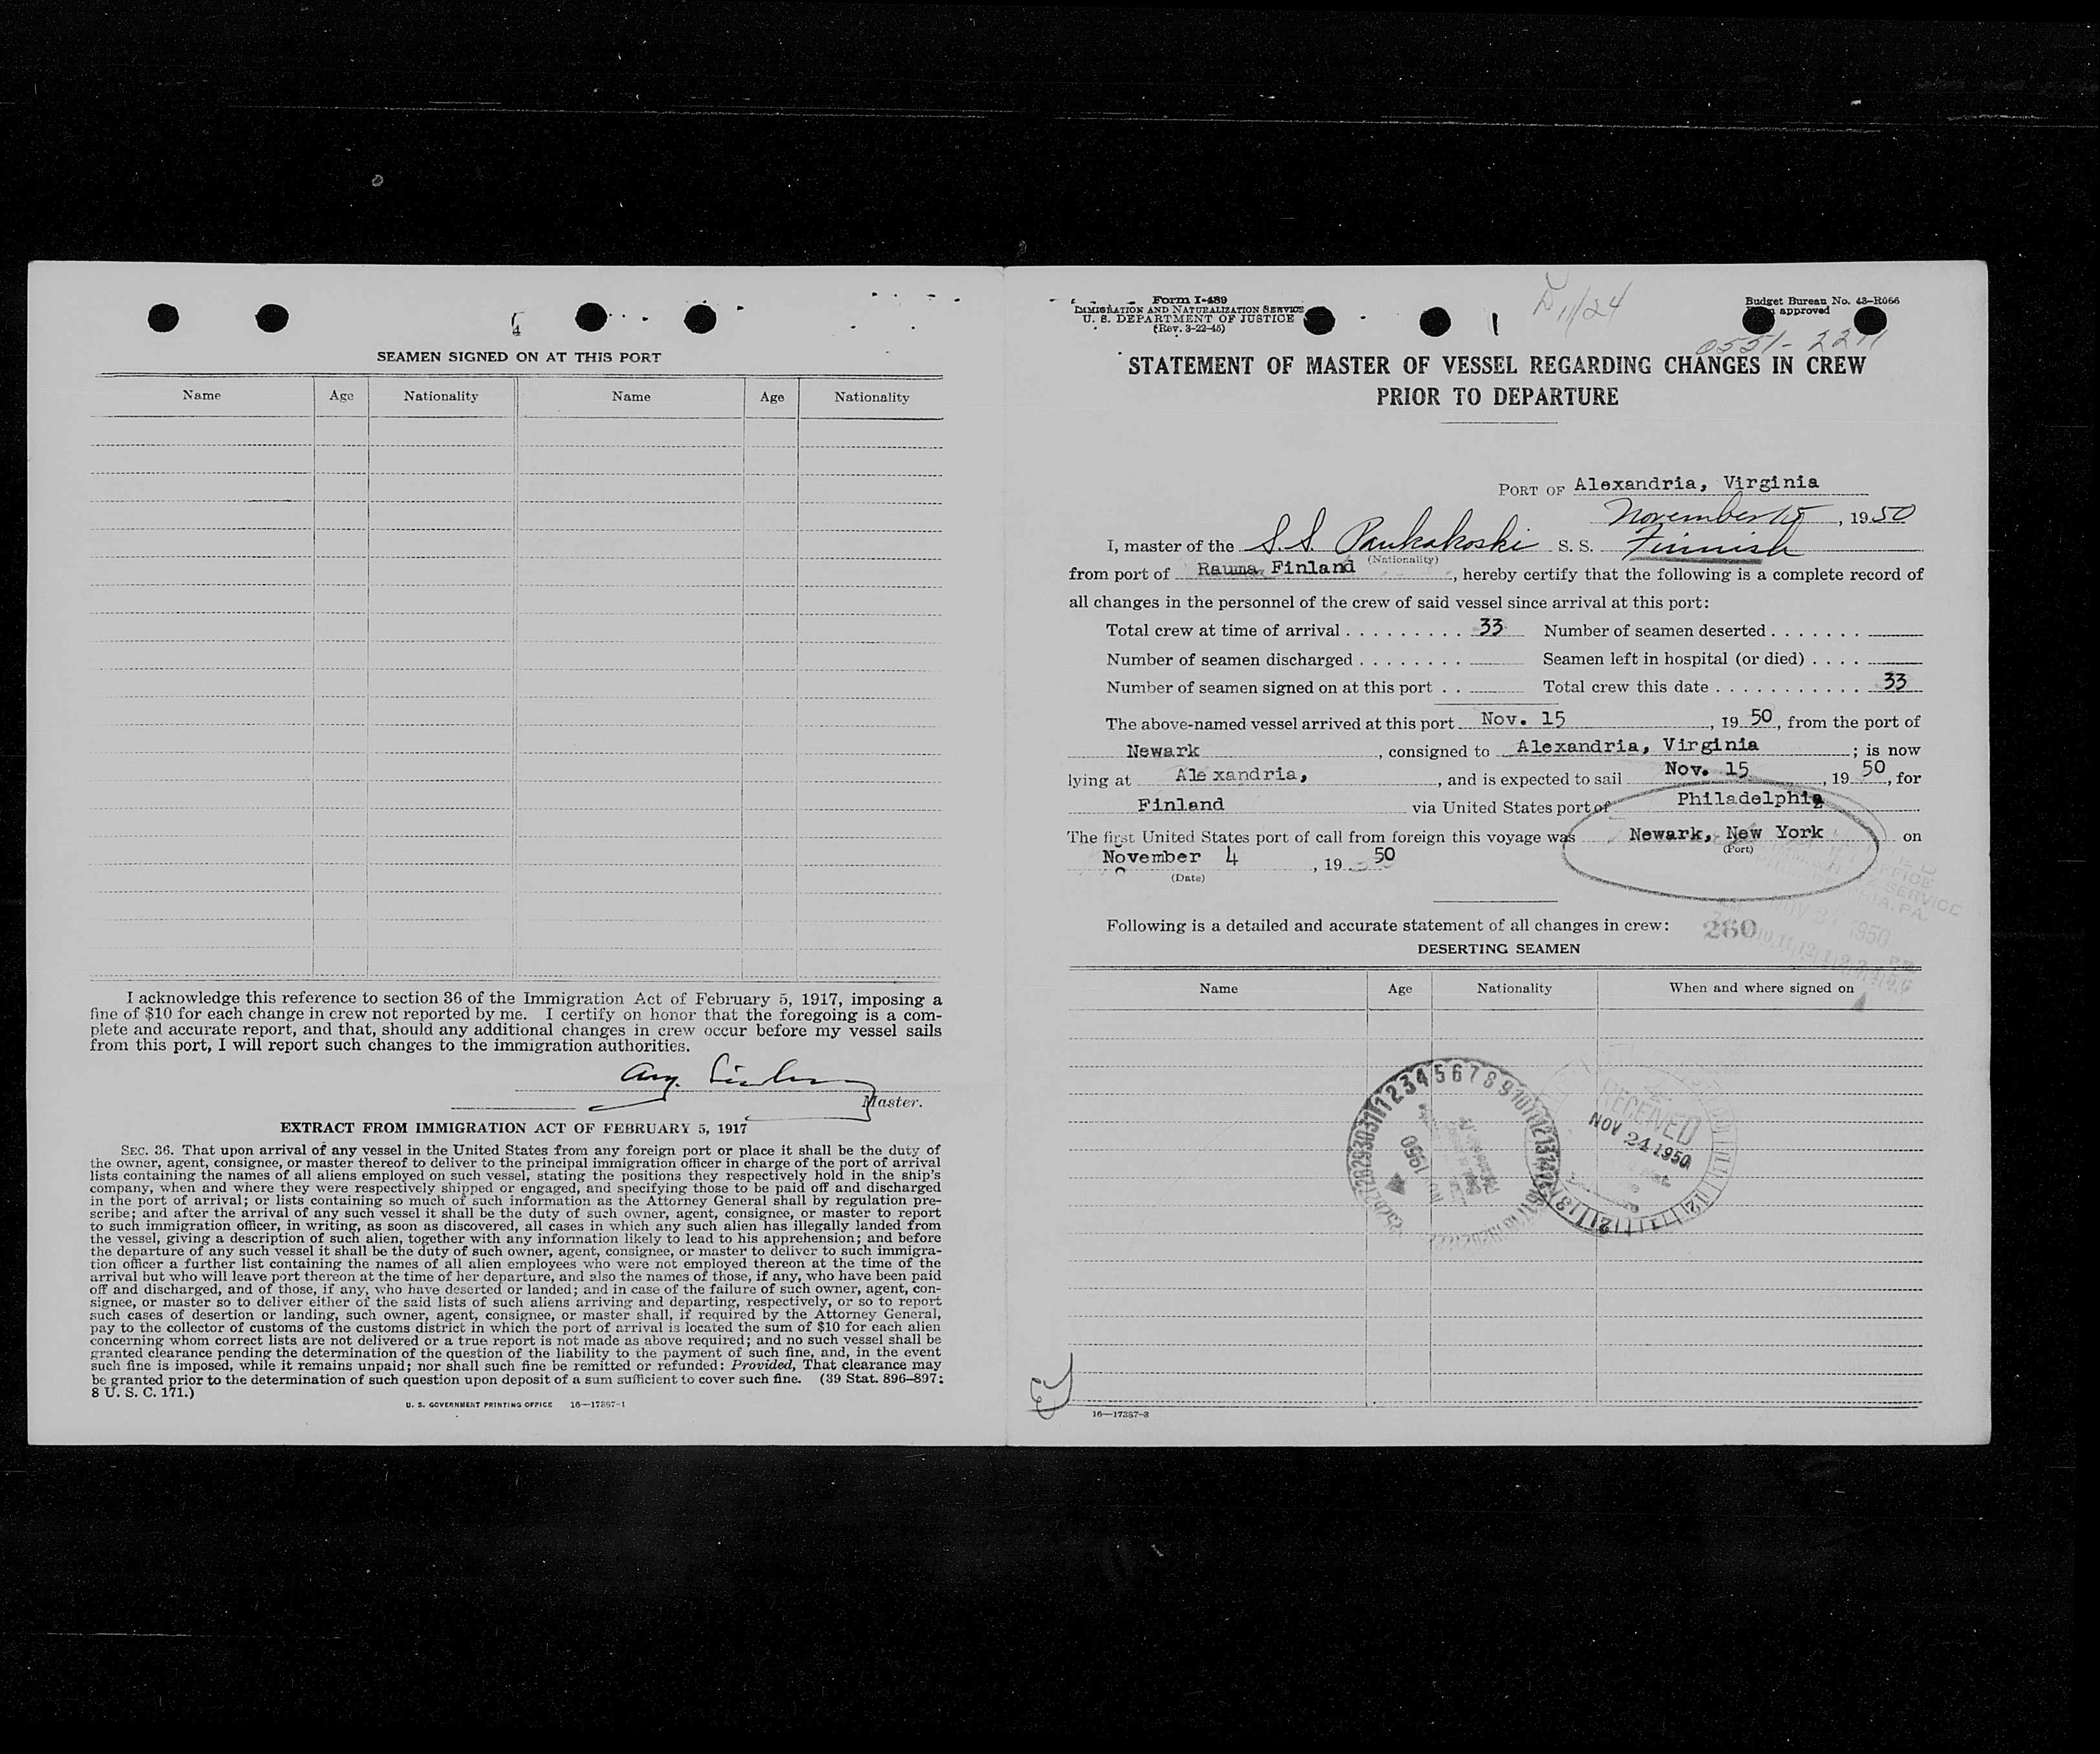 SEAMEN SIGNED ON AT THIS PORT
Name Age Nationality Name Age Nationality
I acknowledge this reference to section 36 of the Immigration Act of February 5, 1917, imposing a
fine of $10 for each change in crew not reported by me. I certify on honor that the foregoing is a com-
plete and accurate report, and that, should any additional changes in crew occur before my vessel sails
from this port, I will report such changes to the immigration authorities.
Master.
EXTRACT FROM IMMIGRATION ACT OF FEBRUARY 5, 1917
SEC. 36. That upon arrival of any vessel in the United States from any foreign port or place it shall be the duty of
the owner, agent, consignee, or master thereof to deliver to the principal immigration officer in charge of the port of arrival
lists containing the names of all aliens employed on such vessel, stating the positions they respectively hold in the ship's
company, when and where they were respectively shipped or engaged, and specifying those to be paid off and discharged
in the port of arrival; or lists containing so much of such information as the Attorney General shall by regulation pre-
scribe; and after the arrival of any such vessel it shall be the duty of such owner, agent, consignee, or master to report
to such immigration officer, in writing, as soon as discovered, all cases in which any such alien has illegally landed from
the vessel, giving a description of such alien, together with any information likely to lead to his apprehension; and before
the departure of any such vessel it shall be the duty of such owner, agent, consignee, or master to deliver to such immigra-
tion officer a further list containing the names of all alien employees who were not employed thereon at the time of the
arrival but who will leave port thereon at the time of her departure, and also the names of those, if any, who have been paid
off and discharged, and of those, if any, who have deserted or landed; and in case of the failure of such owner, agent, con-
signee, or master so to deliver either of the said lists of such aliens arriving and departing, respectively, or so to report
such cases of desertion or landing, such owner, agent, consignee, or master shall, if required by the Attorney General,
pay to the collector of customs of the customs district in which the port of arrival is located the sum of $10 for each alien
concerning whom correct lists are not delivered or a true report is not made as above required; and no such vessel shall be
granted clearance pending the determination of the question of the liability to the payment of such fine, and, in the event
such fine is imposed, while it remains unpaid; nor shall such fine be remitted or refunded: Provided, That clearance may
be granted prior to the determination of such question upon deposit of a sum sufficient to cover such fine. (39 Stat. 896–897;
8 U. S. C. 171.)
U. S. GOVERNMENT PRINTING OFFICE 16—17387-1
Form I-489
IMMIGRATION AND NATURALIZATION SERVICE
U. S. DEPARTMENT OF JUSTICE
(Rev. 3-22-45)
11/24
Budget Bureau No. 43-R066
approved
STATEMENT OF MASTER OF VESSEL REGARDING CHANGES IN CREW
PRIOR TO DEPARTURE
PORT OF Alexandria, Virginia
November 15, 1950
I, master of the S.S. Pankakoski S. S. Finnish
(Nationality)
from port of Rauma, Finland, hereby certify that the following is a complete record of
all changes in the personnel of the crew of said vessel since arrival at this port:
Total crew at time of arrival . . . . . . . . . 33 Number of seamen deserted . . . . . . .
Number of seamen discharged . . . . . . . . Seamen left in hospital (or died) . . . .
Number of seamen signed on at this port . . Total crew this date . . . . . . . . . . . 33
The above-named vessel arrived at this port Nov. 15, 19 50, from the port of
Newark, consigned to Alexandria, Virginia; is now
lying at Alexandria, , and is expected to sail Nov. 15, 19 50, for
Finland via United States port of Philadelphia
The first United States port of call from foreign this voyage was Newark, New York on
(Port)
November 4, 19 50
(Date)
Following is a detailed and accurate statement of all changes in crew:
260
NOV 24 1950
DESERTING SEAMEN
Name Age Nationality When and where signed on
RECEIVED
NOV 24 1950
1950
16—17387-3